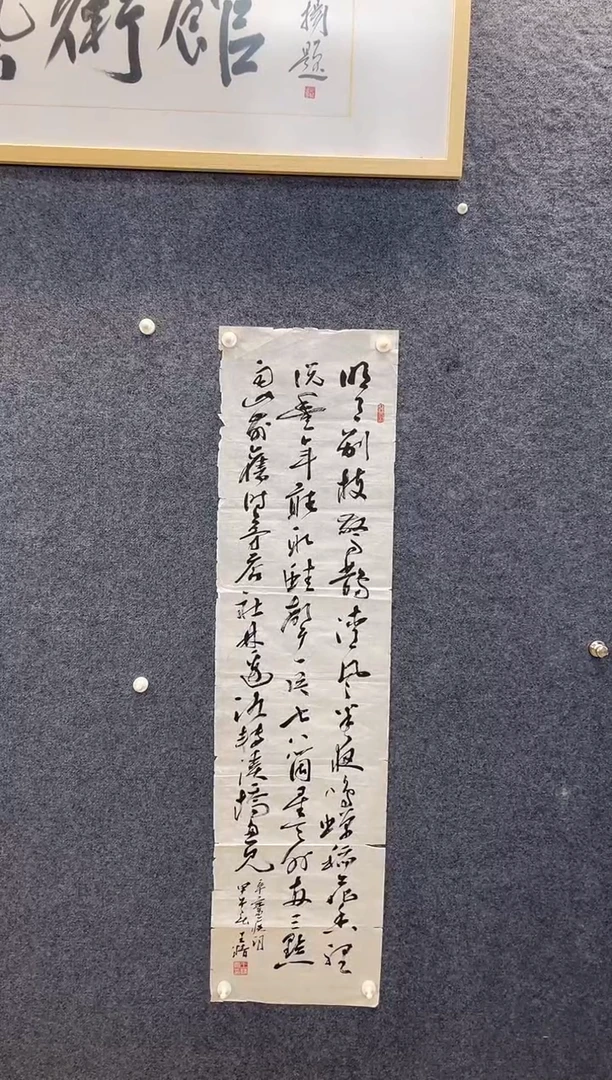 術館
題
明月别枝驚鵲清風半夜鳴蟬稻花香裡
说豐年聽取蛙聲一片七八箇星天外兩三點
雨山前舊時茅店社林邊路轉溪橋忽見
辛棄疾詞
甲午春